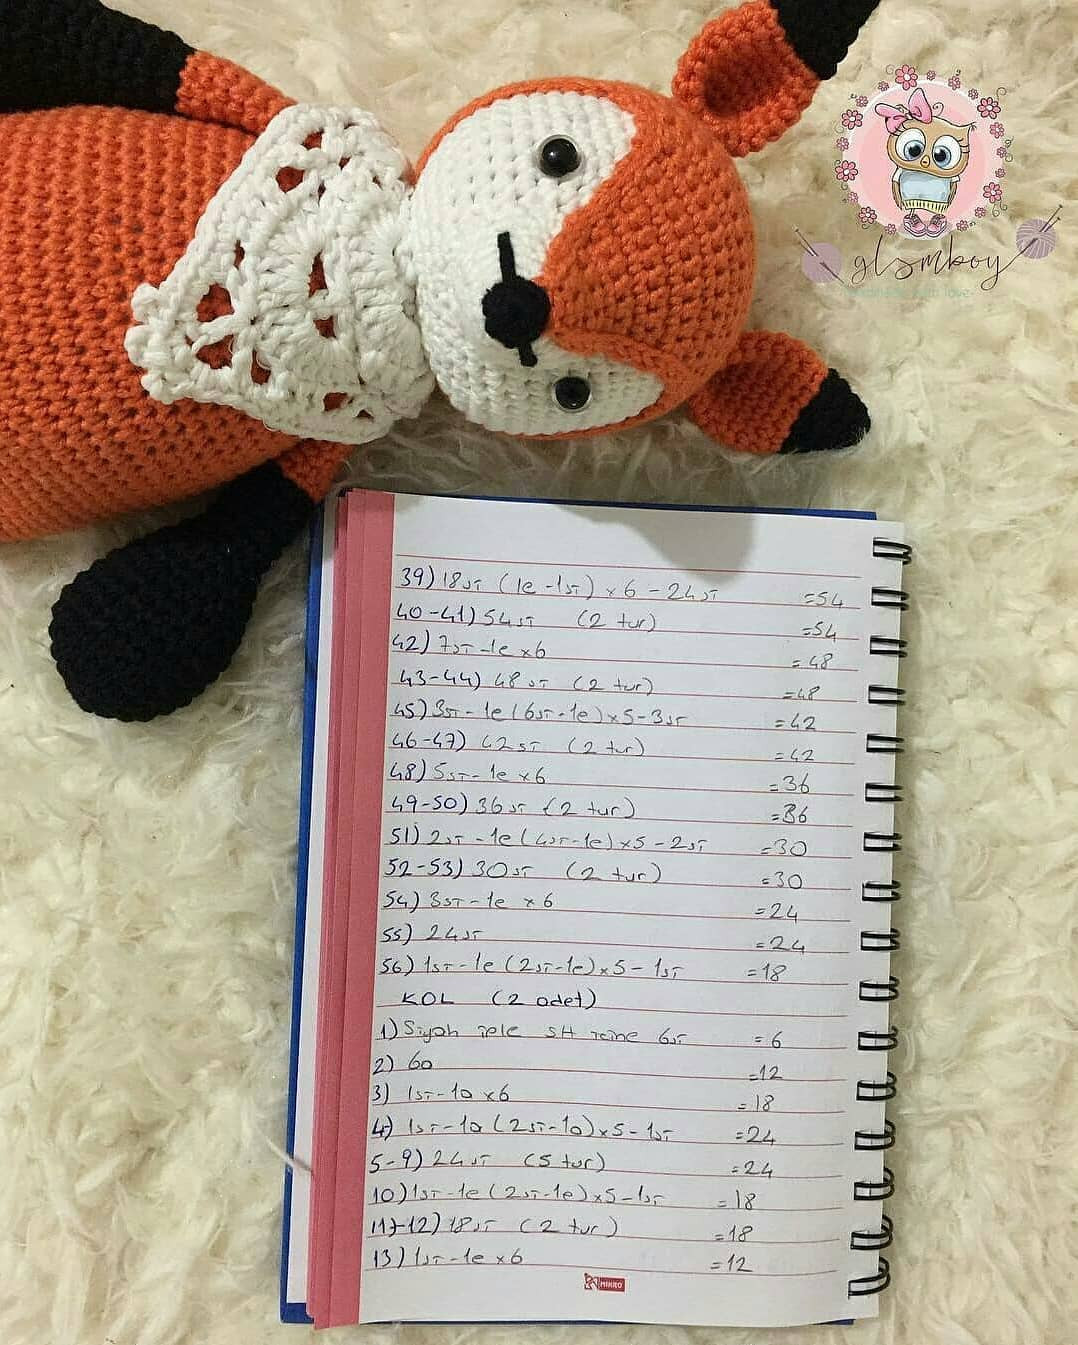 glsmboy
39) 18sı (1e-1sı) x 6 - 24sı =54
40-41) 54sı (2 tur) =54
42) 7sı-1e x6 =48
43-44) 48sı (2 tur) =48
45) 3sı-1e (6sı-1e) x5-3sı =42
46-47) 42sı (2 tur) =42
48) 5sı-1e x6 =36
49-50) 36sı (2 tur) =36
51) 2sı-1e (4sı-1e) x5-2sı =30
52-53) 30sı (2 tur) =30
54) 3sı-1e x6 =24
55) 24sı =24
56) 1sı-1e (2sı-1e) x5-1sı =18
KOL (2 adet)
1) Siyah iple SH içine 6sı =6
2) 6a =12
3) 1sı-1a x6 =18
4) 1sı-1a (2sı-1a) x5-1sı =24
5-9) 24sı (5 tur) =24
10) 1sı-1e (2sı-1e) x5-1sı =18
11)-12) 18sı (2 tur) =18
13) 1sı-1e x6 =12
MIKRO